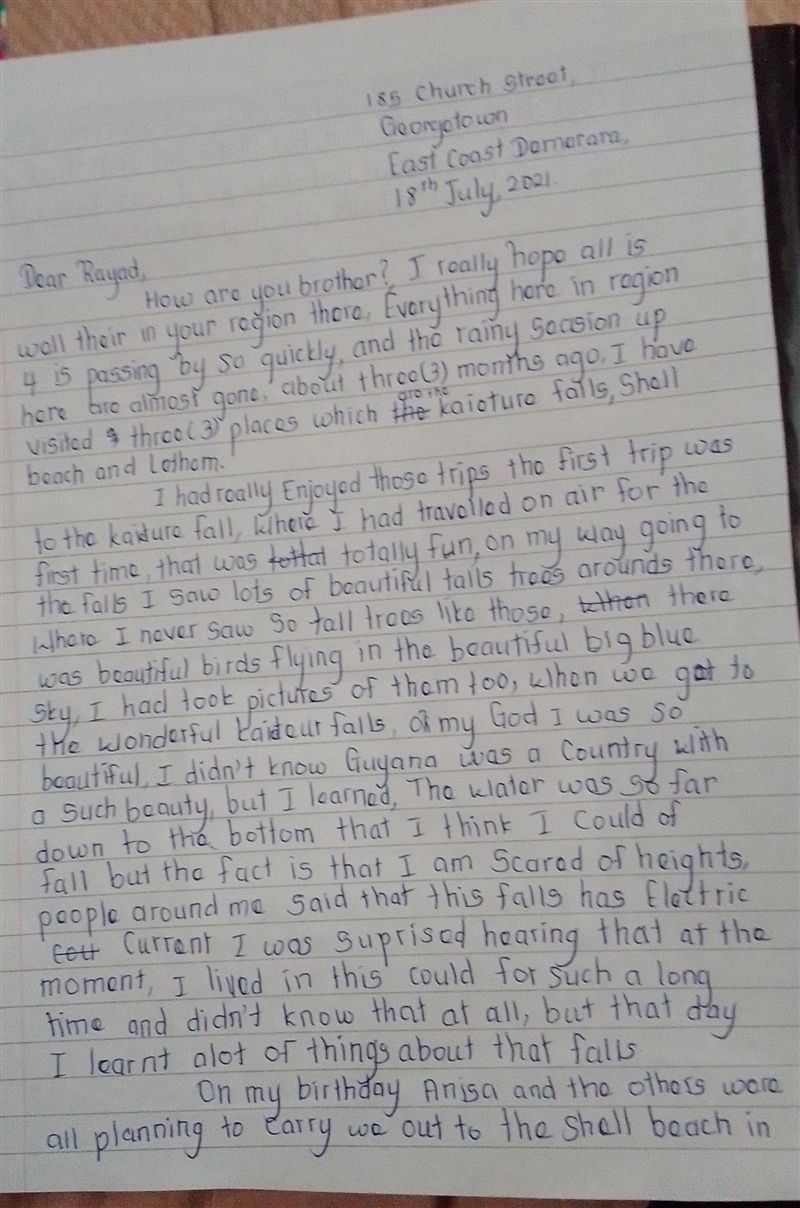 185 Church Street,
Georgetown
East Coast Demerara,
18th July, 2021.
Dear Rayad,
How are you brother? I really hope all is
well their in your region there, Everything here in region
4 is passing by so quickly, and the rainy seasion up
here are almost gone, about three(3) months ago, I have
visited three(3) places which the are the kaieture falls, Shell
beach and Lethem.
I had really Enjoyed those trips the first trip was
to the kaidure fall, Where I had travelled on air for the
first time, that was tottal totally fun, on my way going to
the falls I saw lots of beautiful talls trees arounds there,
Where I never saw so tall trees like those, When there
was beautiful birds flying in the beautiful big blue
sky, I had took pictures of them too, When we got to
the wonderful kaideur falls, oh my God I was so
beautiful, I didn't know Guyana was a Country with
a such beauty, but I learned, The water was so far
down to the bottom that I think I could of
fall but the fact is that I am Scared of heights,
people around me said that this falls has Elettric
Current I was suprised hearing that at the
moment, I lived in this could for such a long
time and didn't know that at all, but that day
I learnt alot of things about that falls
On my birthday Anisa and the others were
all planning to carry we out to the shell beach in